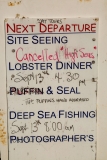 NEXT DEPARTURE
SITE SEEING
"Cancelled" "High Seas"
LOBSTER DINNER
Sept 13th 4.30
PUFFIN & SEAL
DEEP SEA FISHING
Sept 13th 8.00 am
PHOTOGRAPHER'S